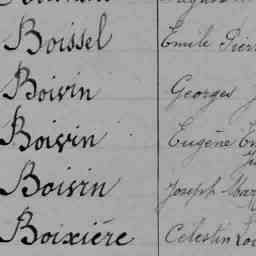 Boissel Emile
Boivin Georges
Boivin Eugène
Boivin Joseph
Boixière Celestin